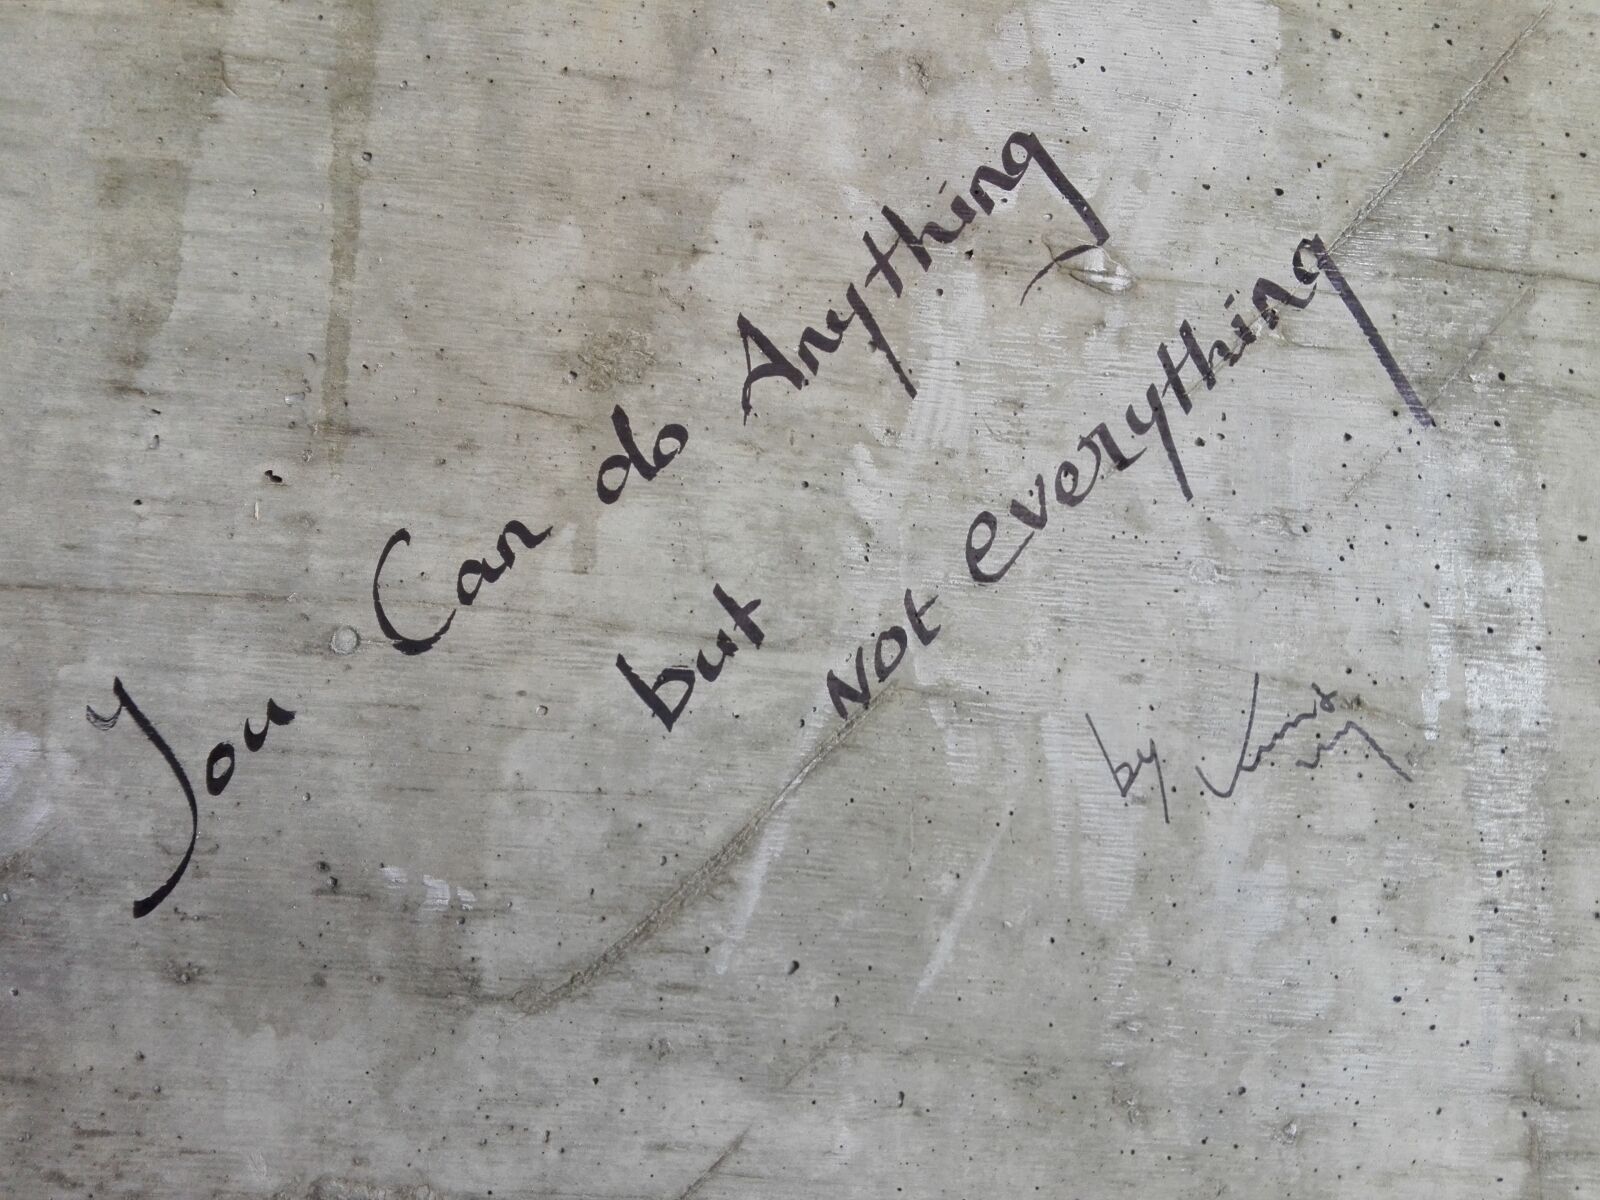 You Can do Anything
but Not everything
by